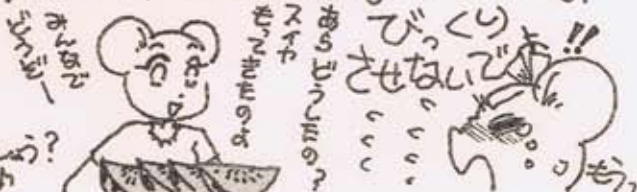 もう
びっくり
させないでよ!!
あらどうしたの?
スイカ
もってきたのよ
みんなで
どうぞー
う?